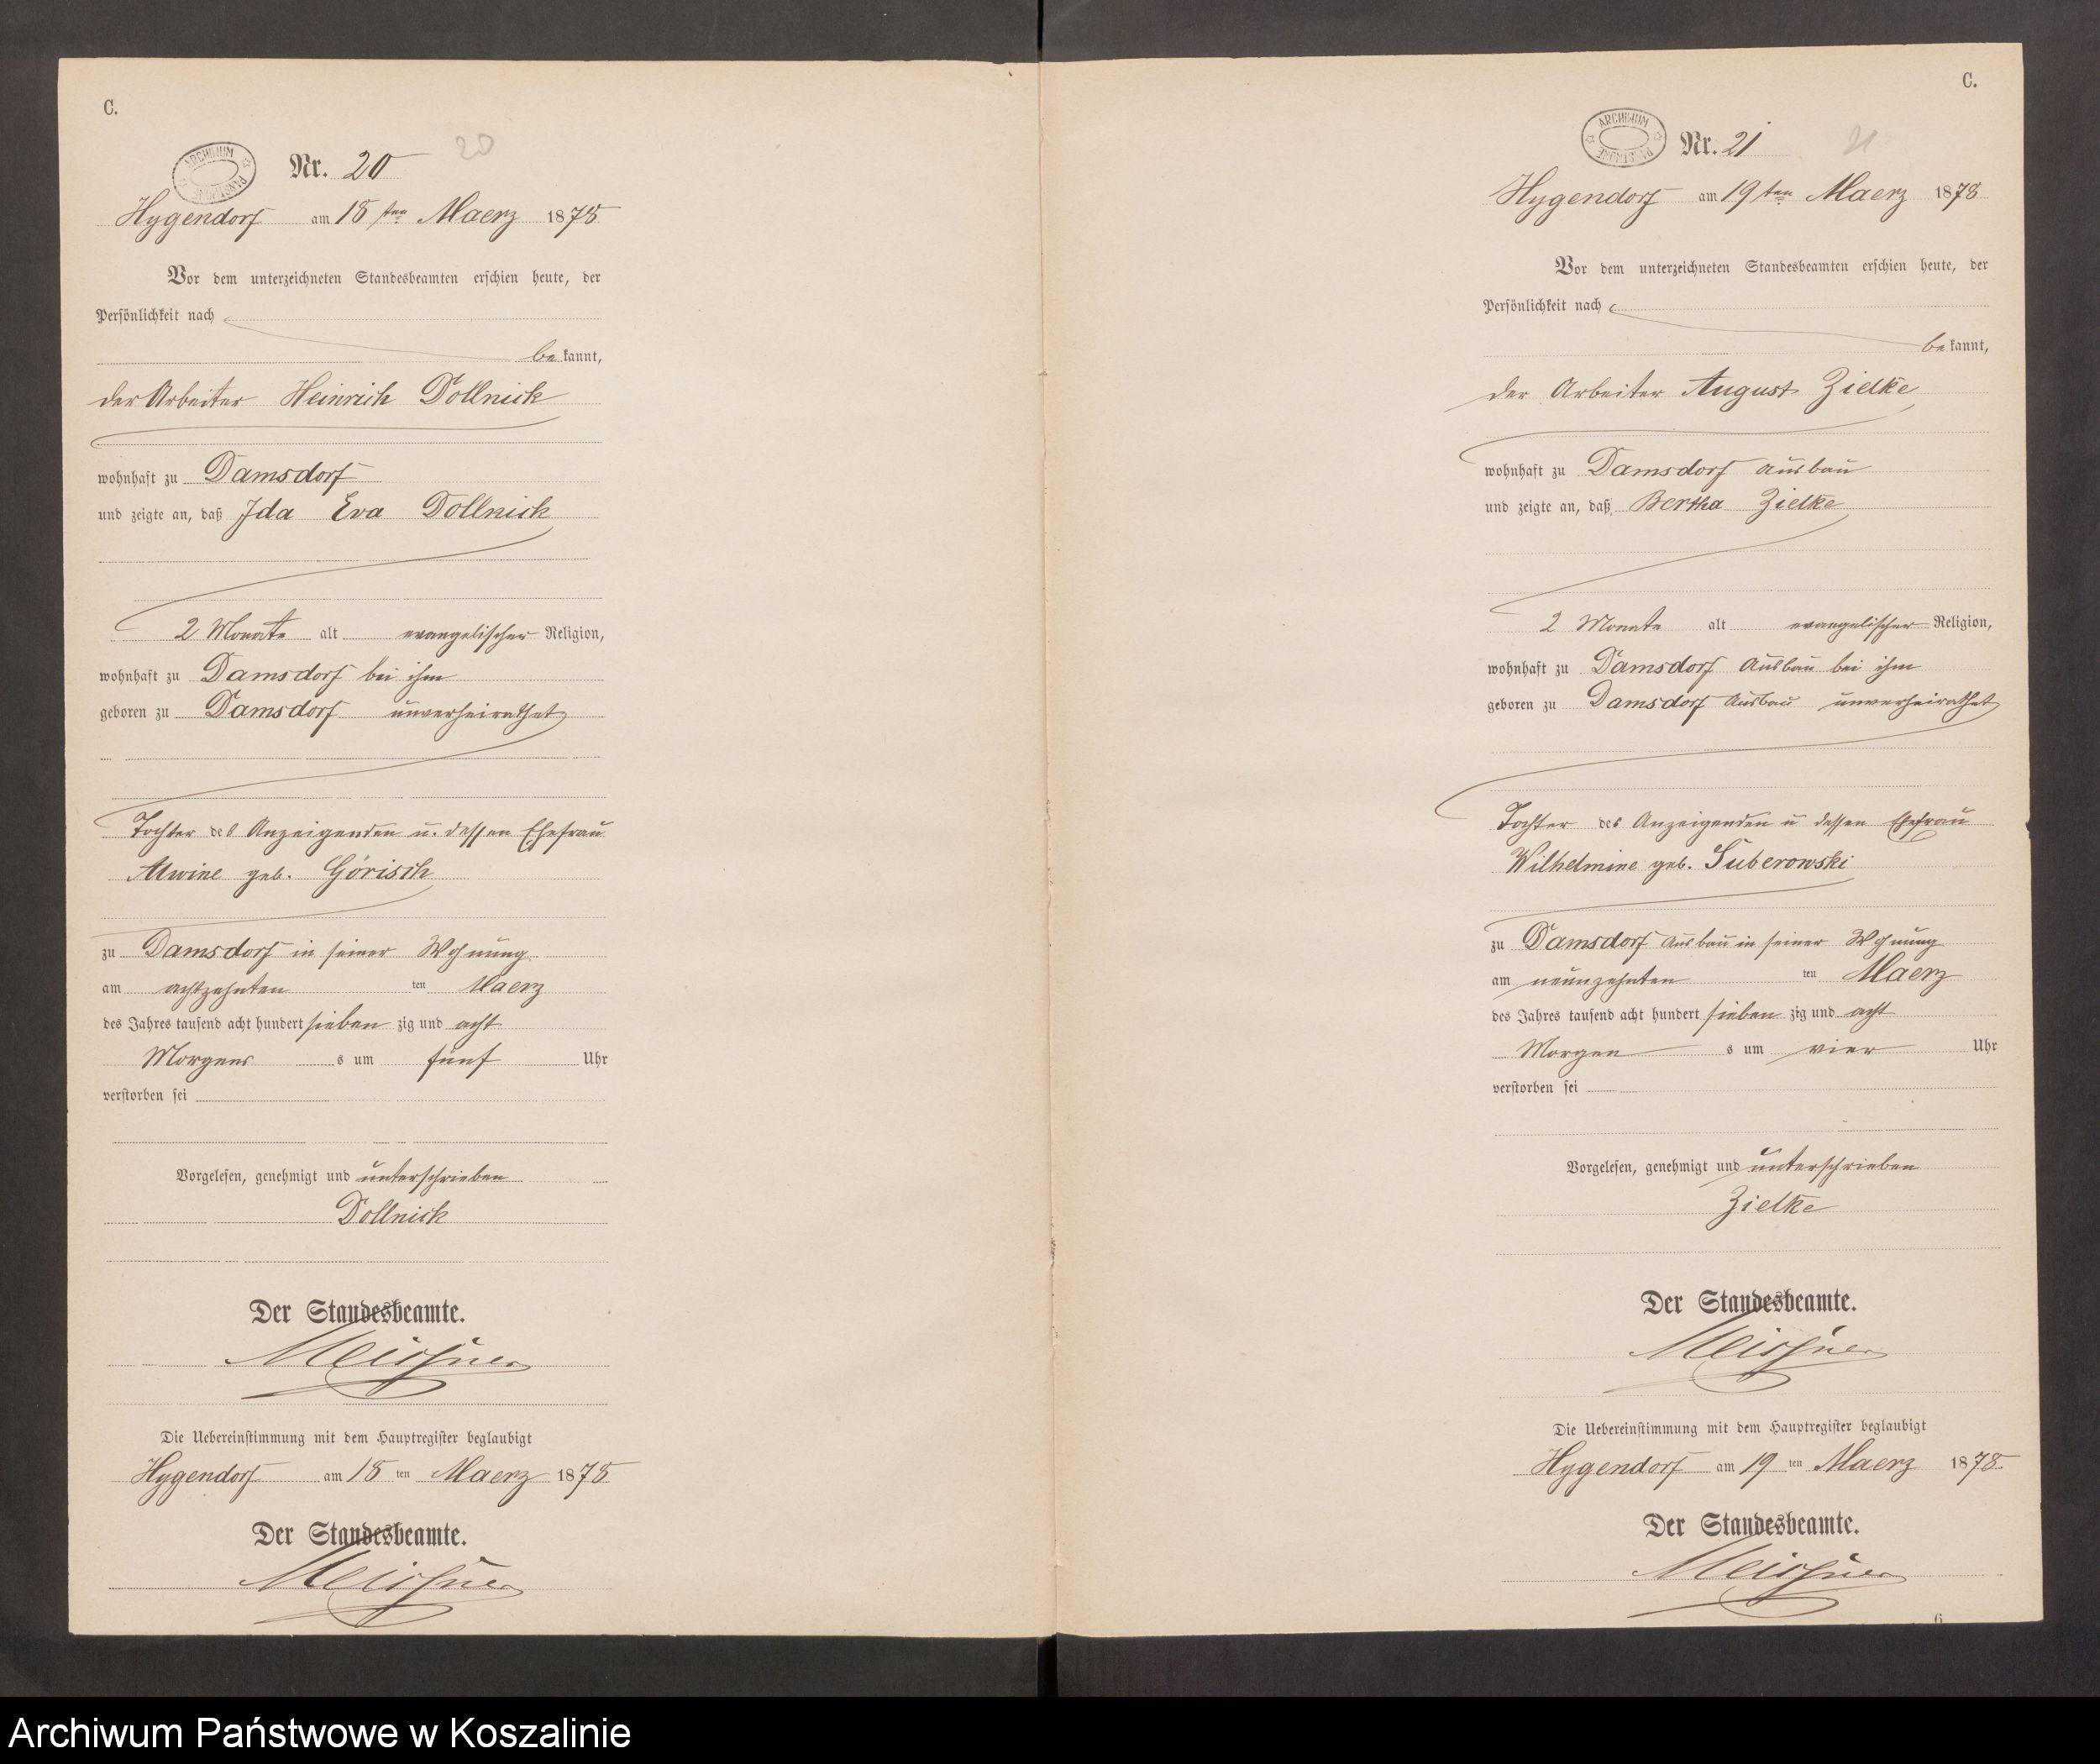 C.
ARCHIWUM PAŃSTWOWE
Nr. 20
20
Hygendorf am 18ten Maerz 1878
Vor dem unterzeichneten Standesbeamten erschien heute, der
Persönlichkeit nach
bekannt,
der Arbeiter Heinrich Dollnick
wohnhaft zu Damsdorf
und zeigte an, daß Ida Eva Dollnick
2 Monate alt evangelischer Religion,
wohnhaft zu Damsdorf bei ihm
geboren zu Damsdorf unverheirathet
Tochter des Anzeigenden u. dessen Ehefrau
Alwine geb. Görisch
zu Damsdorf in seiner Wohnung
am achtzehnten ten Maerz
des Jahres tausend acht hundert sieben zig und acht
Morgens s um fünf Uhr
verstorben sei
Vorgelesen, genehmigt und unterschrieben
Dollnick
Der Standesbeamte.
Meissner
Die Uebereinstimmung mit dem Hauptregister beglaubigt
Hygendorf am 18 ten Maerz 1878
Der Standesbeamte.
Meissner
C.
ARCHIWUM PAŃSTWOWE
Nr. 21
21
Hygendorf am 19ten Maerz 1878
Vor dem unterzeichneten Standesbeamten erschien heute, der
Persönlichkeit nach
bekannt,
der Arbeiter August Zielke
wohnhaft zu Damsdorf Ausbau
und zeigte an, daß Bertha Zielke
2 Monate alt evangelischer Religion,
wohnhaft zu Damsdorf Ausbau bei ihm
geboren zu Damsdorf Ausbau unverheirathet
Tochter des Anzeigenden u dessen Ehefrau
Wilhelmine geb. Suberowski
zu Damsdorf Ausbau in seiner Wohnung
am neunzehnten ten Maerz
des Jahres tausend acht hundert sieben zig und acht
Morgen s um vier Uhr
verstorben sei
Vorgelesen, genehmigt und unterschrieben
Zielke
Der Standesbeamte.
Meissner
Die Uebereinstimmung mit dem Hauptregister beglaubigt
Hygendorf am 19 ten Maerz 1878
Der Standesbeamte.
Meissner
6
Archiwum Państwowe w Koszalinie